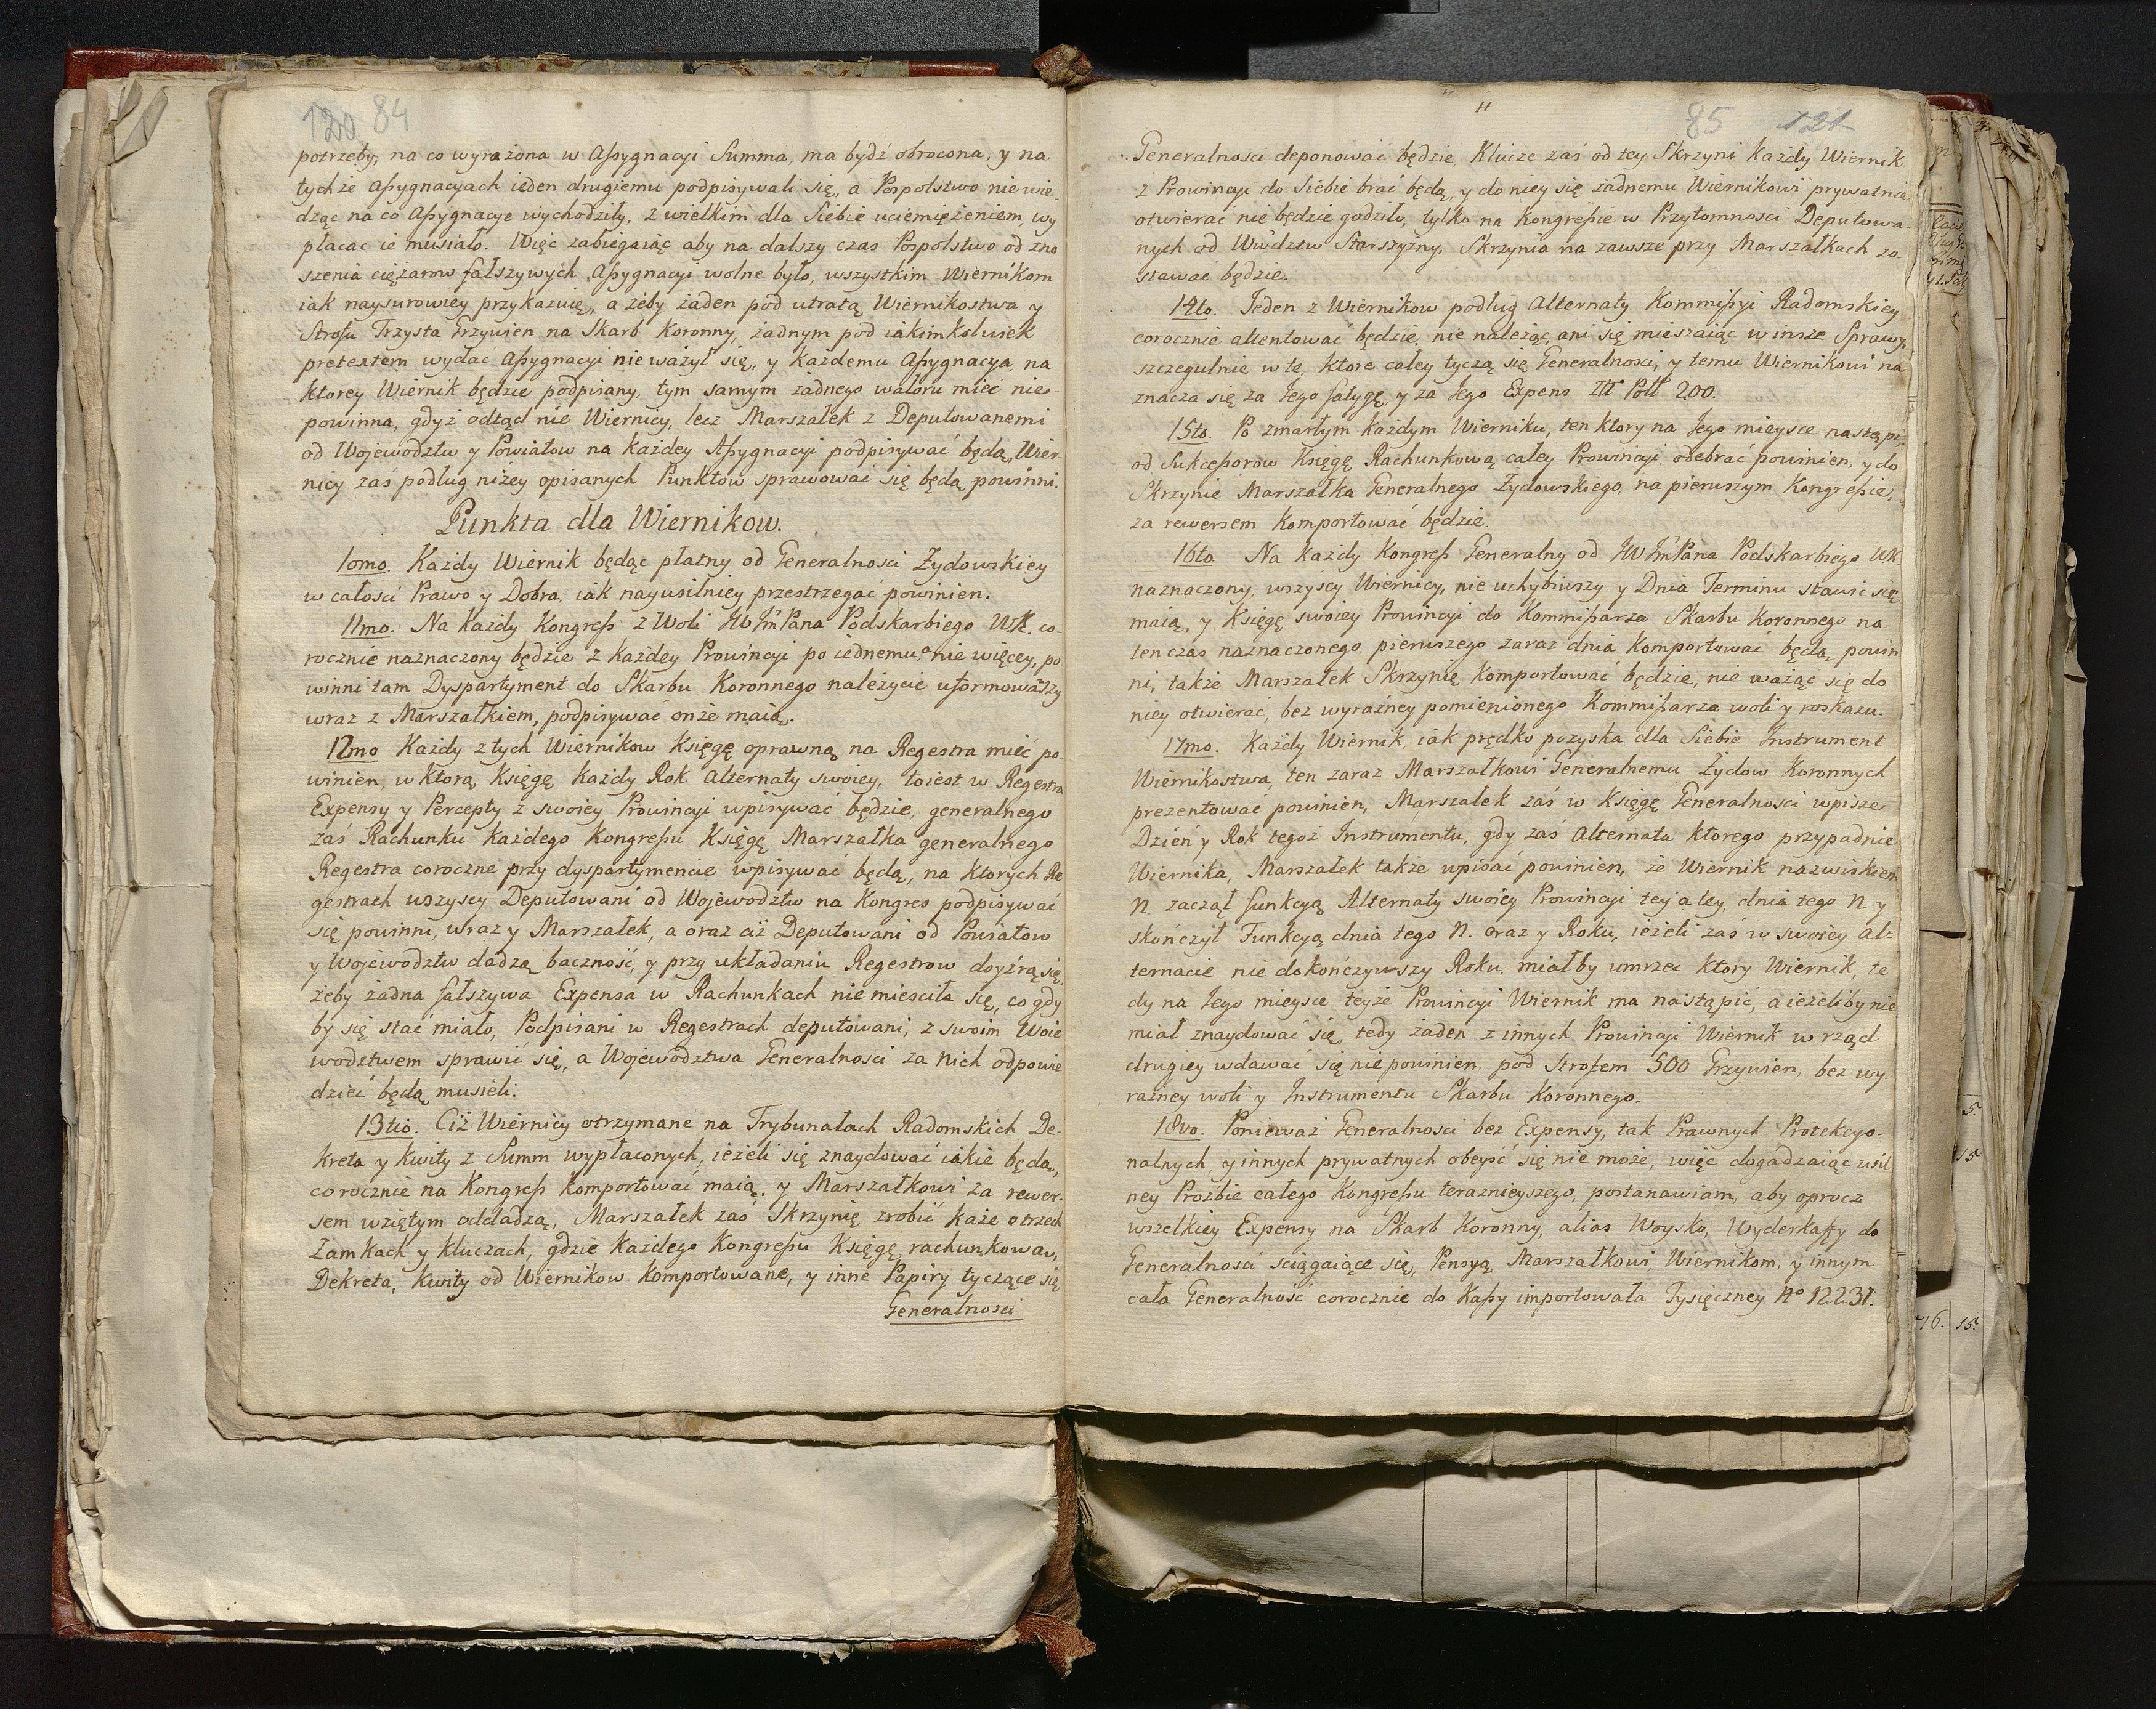 120 84
potrzeby, na co wyrażona w Assygnacyi Summa, ma bydź obrocona, y na
tychże assygnacyach ieden drugiemu podpisywali się, a Pospolstwo nie wie-
dząc na co Assygnacye wychodziły, z wielkim dla Siebie uciemiężeniem, wy
płacac ie musiało. Więc zabiegaiąc aby na dalszy czas Pospolstwo od zno
szenia ciężarow fałszywych Assygnacyi wolne było, wszystkim Wiernikom
iak naysurowiey przykazuię, a żeby żaden pod utratą Wiernikostwa y
Strofu Trzysta Grzywien na Skarb Koronny, żadnym pod iakimkolwiek
pretextem wydac Assygnacyi nie ważył się, y każdemu Assygnacya, na
ktorey Wiernik będzie podpisany, tym samym żadnego waloru miec nie
powinna, gdyż odtąd nie Wiernicy, lecz Marszałek z Deputowanemi
od Wojewodztw y Powiatow na każdey Assygnacyi podpisywać będą, Wier-
nicy zaś podług niżey opisanych Punktow sprawować się będą powinni.
Punkta dla Wiernikow.
10mo. Każdy Wiernik będąc płatny od Generalnosci Żydowskiey
w całosci Prawo y Dobra, iak nayusilniey przestrzegać powinien.
11mo. Na każdy Kongress z Woli JW JmPana Podskarbiego WK. co-
rocznie naznaczony będzie z każdey Prowincyi po iednemu, nie więcey, po
winni tam Dyspartyment do Skarbu Koronnego należycie uformowaszy
wraz z Marszałkiem, podpisywać onże maią.
12mo Każdy z tych Wiernikow Księgę oprawną na Regestra mieć po-
winien, w ktorą Księgę, każdy Rok Alternaty swoiey, toiest w Regestra
Expensy y Percepty z swoiey Prowincyi wpisywać będzie, generalnego
zaś Rachunku każdego Kongressu Księgę Marszałka generalnego
Regestra coroczne przy dyspartymencie wpisywać będą, na ktorych Re
gestrach wszyscy Deputowani od Wojewodztw na Kongres podpisywać
się powinni, wraz y Marszałek, a oraz ciż Deputowani od Powiatow
y Wojewodztw dadzą baczność, y przy układaniu Regestrow doyźrą się,
żeby żadna fałszywa Expensa w Rachunkach nie miesciła się, co gdy
by się stać miało, Podpisani w Regestrach deputowani, z swoim Woie
wodztwem sprawić się, a Wojewodztwa Generalnosci za nich odpowie
dzieć będą musieli.
13tio. Ciż Wiernicy otrzymane na Trybunałach Radomskich De-
kreta y Kwity z Summ wypłaconych, ieżeli się znaydować iakie będą,
corocznie na Kongress komportować maią, y Marszałkowi za rewer-
sem wziętym oddadzą, Marszałek zaś Skrzynię zrobić każe o trzech
Zamkach y kluczach, gdzie każdego Kongressu Księgę rachunkową,
Dekreta, Kwity od Wiernikow komportowane, y inne Papiry tyczące się
Generalnosci
11
85 121
Generalnosci deponować będzie, Klucze zaś od tey Skrzyni każdy Wiernik
z Prowincyi do Siebie brać będą, y do niey się żadnemu Wiernikowi prywatnie
otwierać nie będzie godziło, tylko na Kongressie w Przytomnosci Deputowa-
nych od Wwdztw Starszyzny, Skrzynia na zawsze przy Marszałkach zo
stawać będzie.
14to. Jeden z Wiernikow podług Alternaty Kommissyi Radomskiey
corocznie attentować będzie, nie należąc, ani się mieszaiąc w insze Sprawy,
szczegulnie w te, ktore całey tyczą się Generalnosci, y temu Wiernikowi na
znacza się za Jego fatygę, y za Jego Expens Ttt Pott 200.
15to. Po zmarłym każdym Wierniku, ten ktory na Jego mieysce nastąpi,
od Sukcessorow Księgę Rachunkową całey Prowincyi odebrać powinien, y do
Skrzynie Marszałka Generalnego Żydowskiego, na pierwszym Kongressie,
za rewersem komportować będzie.
16to. Na każdy Kongress Generalny od JW JmPana Podskarbiego WK
naznaczony, wszyscy Wiernicy, nie uchybiwszy y Dnia Terminu stawić się
maią, y Księgę swoiey Prowincyi do Kommissarza Skarbu Koronnego na
ten czas naznaczonego, pierwszego zaraz dnia komportować będą powin
ni, także Marszałek Skrzynię komportować będzie, nie ważąc się do
niey otwierac, bez wyraźney pomienionego Kommissarza woli y roskazu.
17mo. Każdy Wiernik, iak prędko pozyska dla Siebie Instrument
Wiernikostwa, ten zaraz Marszałkowi Generalnemu Żydow Koronnych
prezentować powinien, Marszałek zaś w Księgę Generalnosci wpisze
Dzień y Rok tegoż Instrumentu, gdy zaś Alternata ktorego przypadnie
Wiernika, Marszałek także wpisać powinien, że Wiernik nazwiskiem
N. zaczął funkcyą Alternaty swoiey Prowincyi tey a tey, dnia tego N. y
skończył Funkcyą dnia tego N. oraz y Roku, ieżeli zaś w swoiey Al-
ternacie nie dokończywszy Roku, miałby umrzec ktory Wiernik, te
dy na Jego mieysce teyże Prowincyi Wiernik ma nastąpić, a ieżeliby nie
miał znaydować się, tedy żaden z innych Prowincyi Wiernik w rząd
drugiey wdawać się nie powinien, pod Strofem 500 Grzywien, bez wy-
raźney woli y Instrumentu Skarbu Koronnego.
18vo. Ponieważ Generalnosci bez Expensy, tak Prawnych Protekcyo-
nalnych, y innych prywatnych obeyść się nie może, więc dogadzaiąc usil
ney Proźbie całego Kongressu teraznieyszego, postanawiam, aby oprocz
wszelkiey Expensy na Skarb Koronny, alias Woysko, Wyderkaffy do
Generalnosci sciągaiące się, Pensyą, Marszałkowi, Wiernikom, y innym
cała Generalność corocznie do Kassy importowała Tysięczney No 12231.